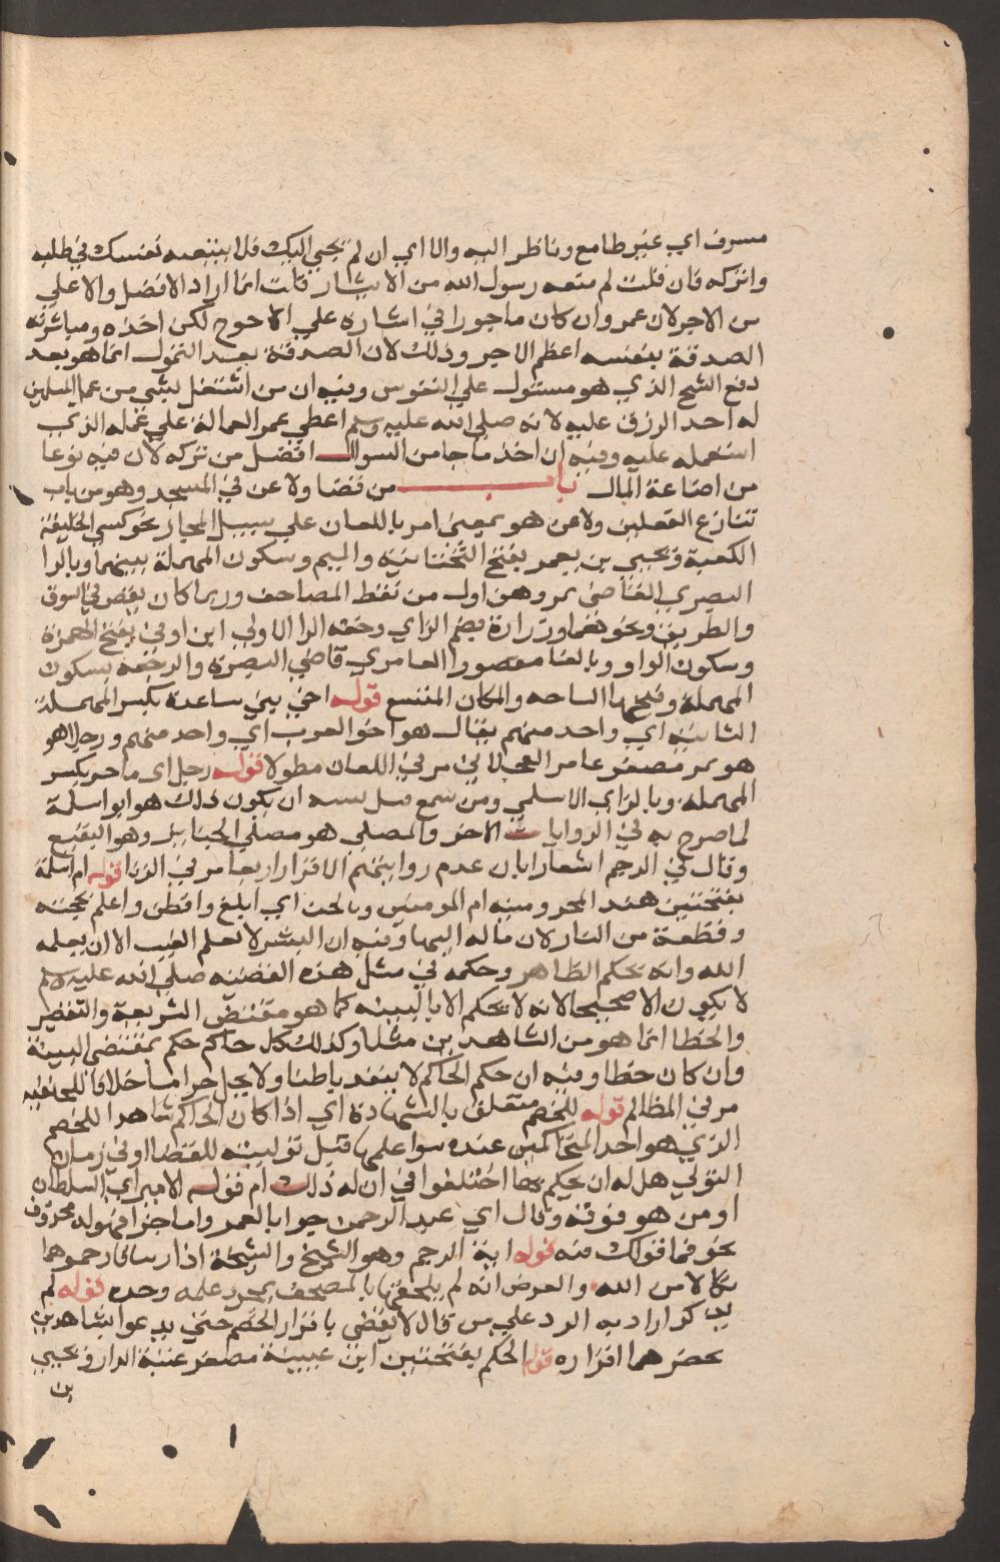 مسرف اي غير طامع وناظر اليه والا اي ان لم يجي اليك فلا يتبعه نفسك في طلبه
واتركه فان قلت لم منعه رسول الله من الايثار قلت انما اراد الافضل والاعلي
من الاجر لان عمر وان كان ماجورا في ايثاره علي الاحوج لكن اخذه ومباشرته
الصدقة بنفسه اعظم الاجر وذلك لان الصدقة بعد التمول انما هو بعد
دفع الشح الذي هو مستول علي النفوس وفيه ان من اشتغل بشي من عمل المسلمين
له اخذ الرزق عليه لانه صلي الله عليه وسلم اعطي عمر العمالة علي عمله الذي
استعمله عليه وفيه ان اخذ ما جا من السوال افضل من تركه لان فيه نوعا
من اضاعة المال باب من قضا ولاعن في المسجد وهو من باب
تنازع الفعلين ولاعن هو بمعني امر باللعان علي سبيل المجاز نحو كسي الخليفة
الكعبة ويحيي بن يعمر بفتح التحتانية والميم وسكون المهملة بينهما وبالرا
البصري القاضي بمرو وهو اول من نقط المصاحف وربما كان يقضي في السوق
والطريق ونحوهما وزرارة بضم الزاي وخفة الرا الاولي ابن اوفي بفتح الهمزة
وسكون الواو وبالفا مقصورا العامري قاضي البصرة والرحبة بسكون
المهملة وفتحها الساحه والمكان المتسع قوله اخي بني ساعدة بكسر المهملة
الثانية اي واحد منهم يقال هو اخو العرب اي واحد منهم ورجلا هو
هو عويمر مصغر عامر العجلاني مر في اللعان مطولا قوله رجل اي ماعز بكسر
المهملة وبالزاي الاسلمي ومن سمع قيل يشبه ان يكون ذلك هو ابو سلمة
لما صرح به في الروايات الاخر والمصلي هو مصلي الجنايز وهو البقيع
وقال في الرجم اشعارا بان عدم روايتهم الاقرار اربعا مر في الزنا قوله ام سلمة
بفتحتين هند المخزومية ام المومنين وبالحن اي ابلغ وافطن واعلم بحجته
وقطعة من النار لان ماله اليها وفيه ان البشر لا يعلم الغيب الا ان يعلمه
الله وانه يحكم بالظاهر وحكمه في مثل هذه القضية صلي الله عليه وسلم
لا يكون الا صحيحا لانه لا يحكم الا بالبينة كما هو مقتضي الشريعة والتقصير
والخطا انما هو من الشاهدين مثلا وكذلك كل حاكم حكم بمقتضي البينة
وان كان خطا وفيه ان حكم الحاكم لا ينفذ باطنا ولا يحل حراما خلافا للحنفية
مر في المظالم قوله للخصم متعلق بالشهادة اي اذا كان الحاكم شاهدا للخصم
الذي هو احد المتحاكمين عنده سوا علمها قبل توليته للقضا او في زمان
التولي هل له ان يحكم بها اختلفوا في ان له ذلك ام قوله الامير اي السلطان
او من هو فوقه وقال اي عبد الرحمن جوابا لعمر واما جزا فهو لو محذوف
نحو فما قولك فيه قوله اية الرجم وهو الشيخ والشيخة اذا زنيا فارجموهما
نكالا من الله والغرض انه لم يلحقها بالمصحف بمجرد علمه وحده قوله لم
يذكر اراد به الرد علي من قال لا يقضي باقرار الخصم حتي يدعو بشاهدين
يحضرهما اقراره قوله الحكم بفتحتين ابن عتيبة مصغر عتبة الدار ويحيي
بن